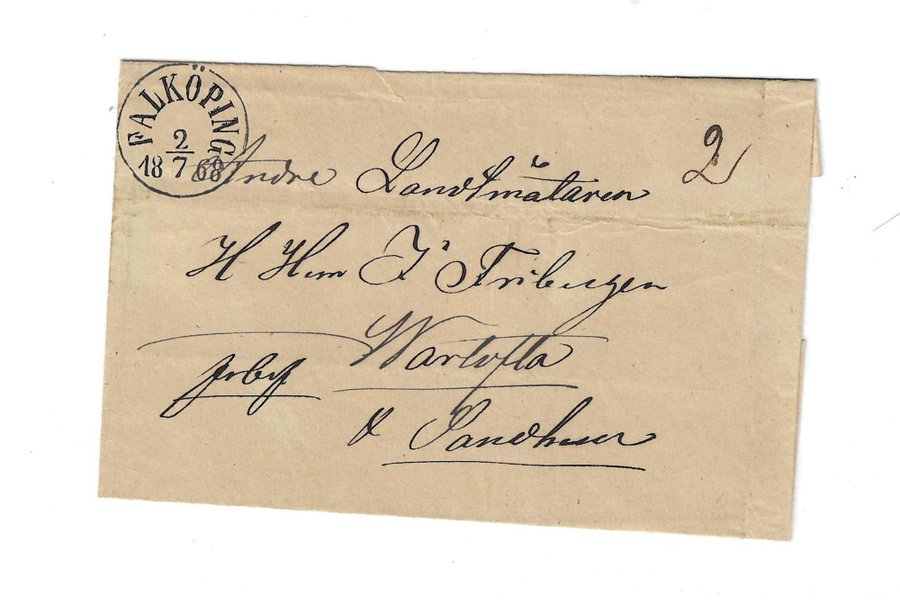 FALKÖPING
2
18 7 68
2
Andre Landtmätaren
H Herr J Fribergen
Warlofta
frbrf
& Sandhem